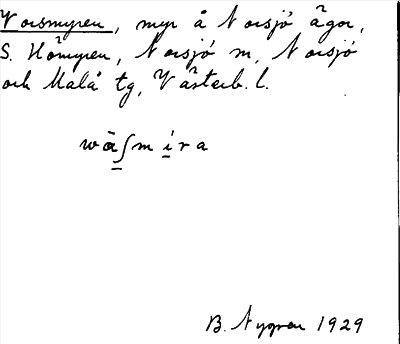 Vorsmyren, myr å Norsjö ägor,
S. Hömyren, Norsjö sn, Norsjö
och Malå tg, Västerb. l.
B. Nygren 1929